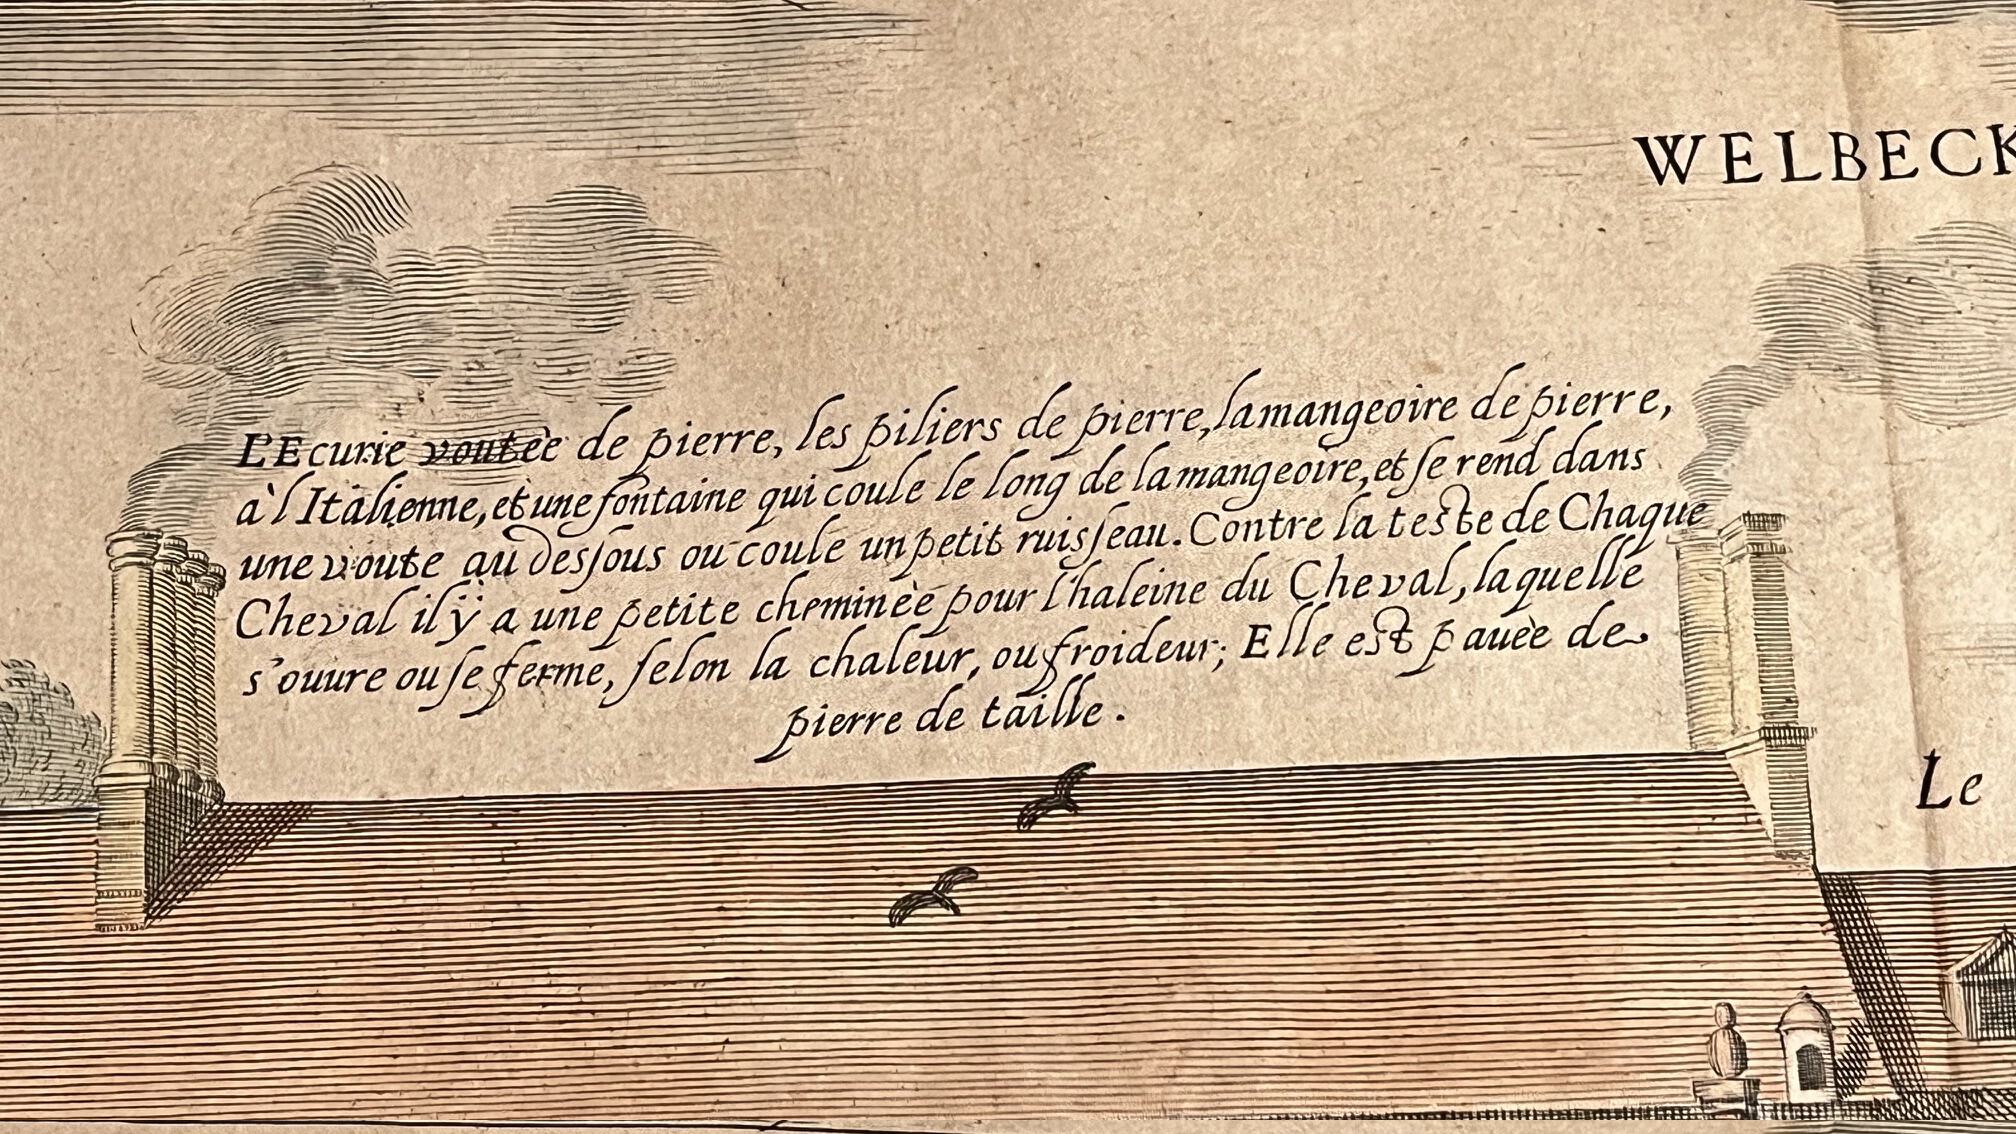 WELBECK
L'Ecurie voutèe de pierre, les piliers de pierre, la mangeoire de pierre,
à l'Italienne, et une fontaine qui coule le long de la mangeoire, et se rend dans
une voute au dessous ou coule un petit ruisseau. Contre la teste de Chaque
Cheval il ÿ a une petite cheminèe pour l'haleine du Cheval, laquelle
s'ouure ou se ferme, selon la chaleur, ou froideur; Elle est pauèe de
pierre de taille.
Le